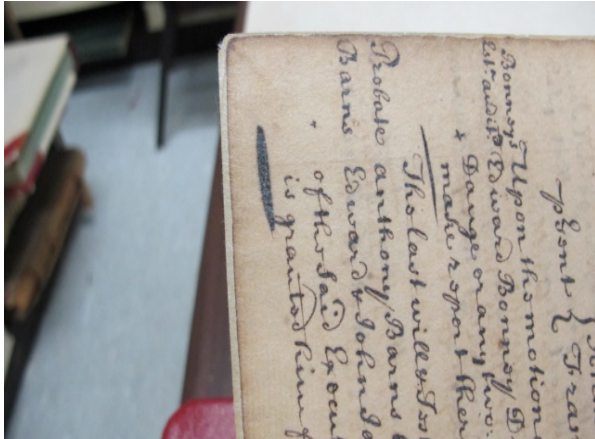 psent { Tra
Bonneys Upon the motion
Edward Bonney D
& Dauge or any two
make report ther
The last will & Tes
Probate anthony Barns
Barns Edward & John
of the Said Execu
is granted him